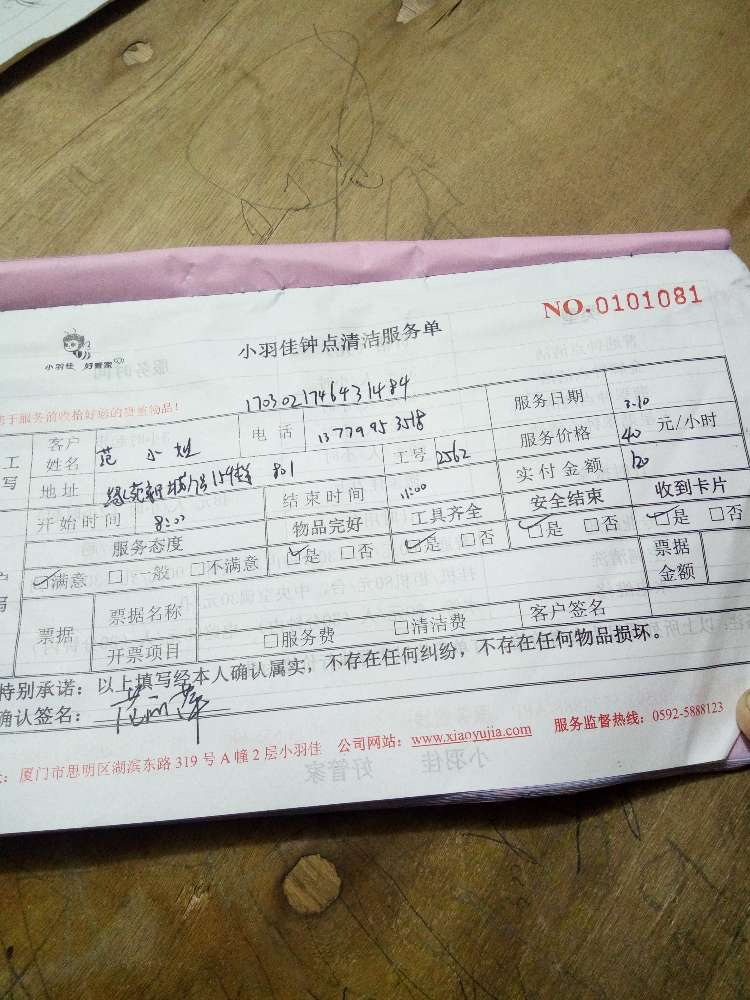 NO.0101081
小羽佳 好管家
小羽佳钟点清洁服务单
服务前收拾好您的贵重物品!
170302174643 1484
工 客户姓名 范小姐 电话 13779953518 服务日期 3.10
写 地址 801 工号 2562 服务价格 40 元/小时
开始时间 8:00 结束时间 11:00 实付金额 120
服务态度 物品完好 工具齐全 安全结束 收到卡片
满意 一般 不满意 是 否 是 否 是 否 是 否
票据 票据名称 票据金额
开票项目 服务费 清洁费 客户签名
特别承诺:以上填写经本人确认属实,不存在任何纠纷,不存在任何物品损坏。
确认签名:
厦门市思明区湖滨东路319号A幢2层小羽佳 公司网站:www.xiaoyujia.com 服务监督热线:0592-5888123